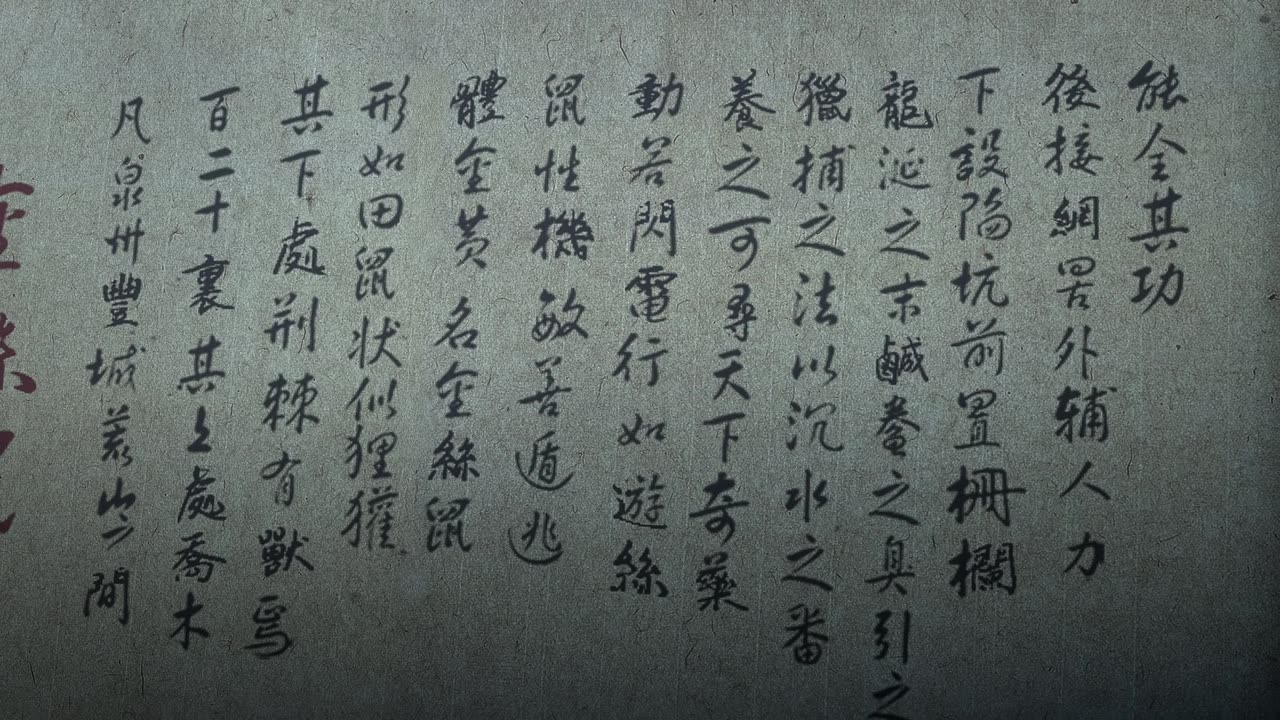 凡泉州豐城山之間
百二十裏其上處喬木
其下處荆棘有獸焉
形如田鼠状似狸獾
體金黄名金絲鼠
鼠性機敏善遁逃
動若閃電行如遊絲
養之可尋天下奇藥
獵捕之法以沉水之番
龍涎之末鹹鲞之臭引之
下設陷坑前置柵欄
後接網罟外辅人力
能全其功